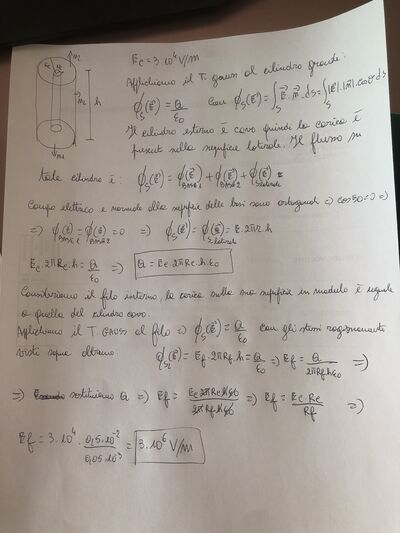 Ec = 3·10⁴ V/m
Applichiamo il T. gauss al cilindro grande:
Φs(E⃗) = Q/ε0 con Φs(E⃗) = ∫s E⃗·n⃗·ds = ∫s |E⃗|·|n⃗|·cosθ ds
Il cilindro esterno è cavo quindi la carica è
present sulla superficie laterale. Il flusso su
tale cilindro è: Φs(E⃗) = Φ(E⃗) BASE 1 + Φ(E⃗) BASE 2 + Φ(E⃗) S laterale
Campo elettrico e normale alla superficie delle basi sono ortogonali => cos 90 = 0 =>
=> Φ(E⃗) BASE 1 = Φ(E⃗) BASE 2 = 0 => Φs(E⃗) = Φ(E⃗) S. laterale = E·2πr·h
Ec·2πRc·h = Q/ε0 => Q = Ec·2πRc·h·ε0
Consideriamo il filo interno, la carica sulla sua superficie in modulo è uguale
a quella del cilindro cavo.
Applichiamo il T GAUSS al filo => Φs(E⃗) = Q/ε0 con gli stessi ragionamenti
visti sopra Φs(E⃗) = Ef·2πRf·h = Q/ε0 => Ef = Q/2πRf·h·ε0 =>
=> sostituiamo Q => Ef = Ec·2πRc·h·ε0/2πRf·h·ε0 => Ef = Ec·Rc/Rf =>
Ef = 3·10⁴ · 0,5·10⁻²/0,05·10⁻³ = 3·10⁶ V/m